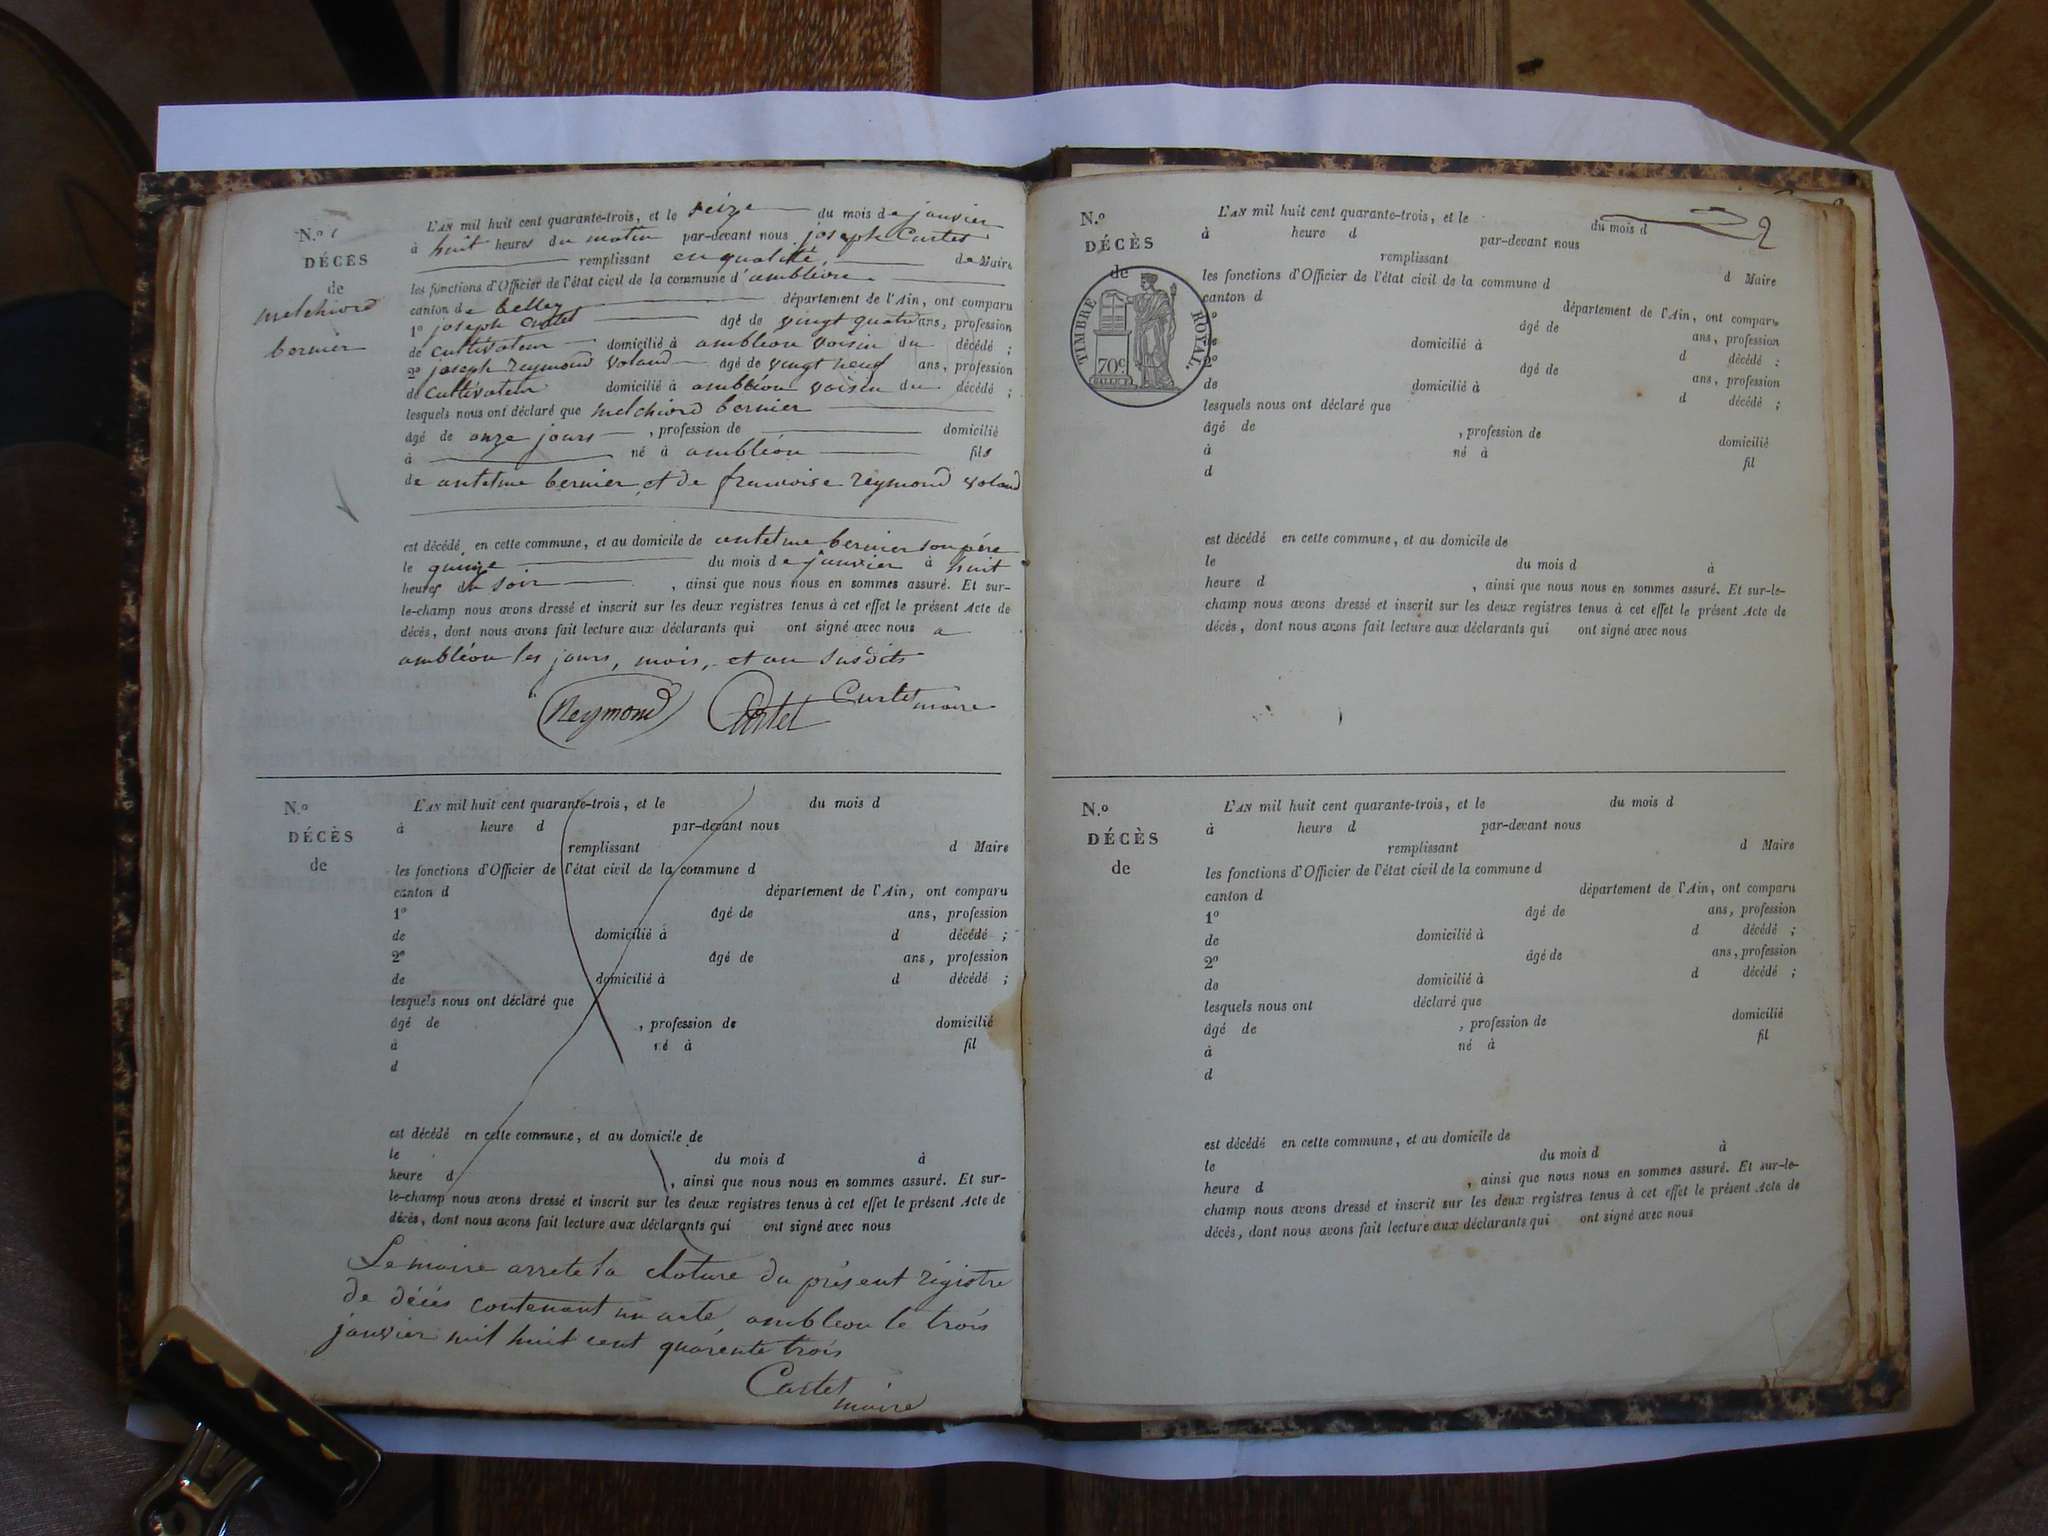 N.º 1
DÉCÈS
de
melchiord
bernier
L'AN mil huit cent quarante-trois, et le seize du mois de janvier
à huit heures du matin par-devant nous joseph Curtet
remplissant en qualité de Maire
les fonctions d'Officier de l'état civil de la commune d'ambléon
canton de belley département de l'Ain, ont comparu
1º joseph Curtet âgé de vingt quatre ans, profession
de cultivateur domicilié à ambléon voisin du décédé ;
2º joseph reymond voland âgé de vingt neuf ans, profession
de cultivateur domicilié à ambléon voisin du décédé ;
lesquels nous ont déclaré que melchiord bernier
âgé de onze jours , profession de domicilié
à né à ambléon fils
de antelme bernier et de francoise reymond voland
est décédé en cette commune, et au domicile de antelme bernier son père
le quinze du mois de janvier à huit
heures du soir , ainsi que nous nous en sommes assuré. Et sur-
le-champ nous avons dressé et inscrit sur les deux registres tenus à cet effet le présent Acte de
décès, dont nous avons fait lecture aux déclarants qui ont signé avec nous a
ambléon les jours, mois, et an susdits
Reymond Curtet Curtet maire
N.º
DÉCÈS
de
L'AN mil huit cent quarante-trois, et le du mois d
à heure d par-devant nous
remplissant d Maire
les fonctions d'Officier de l'état civil de la commune d
canton d département de l'Ain, ont comparu
1º âgé de ans, profession
de domicilié à d décédé ;
2º âgé de ans, profession
de domicilié à d décédé ;
lesquels nous ont déclaré que
âgé de , profession de domicilié
à né à fil
d
est décédé en cette commune, et au domicile de
le du mois d à
heure d , ainsi que nous nous en sommes assuré. Et sur-
le-champ nous avons dressé et inscrit sur les deux registres tenus à cet effet le présent Acte de
décès, dont nous avons fait lecture aux déclarants qui ont signé avec nous
Le maire arrete la cloture du présent régistre
de décés contenant un acte, ambleon le trois
janvier mil huit cent quarente trois
Curtet
maire
2
N.º
DÉCÈS
de
TIMBRE ROYAL.
70c.
L'AN mil huit cent quarante-trois, et le du mois d
à heure d par-devant nous
remplissant d Maire
les fonctions d'Officier de l'état civil de la commune d
canton d département de l'Ain, ont comparu
1º âgé de ans, profession
de domicilié à d décédé ;
2º âgé de ans, profession
de domicilié à d décédé ;
lesquels nous ont déclaré que
âgé de , profession de domicilié
à né à fil
d
est décédé en cette commune, et au domicile de
le du mois d à
heure d , ainsi que nous nous en sommes assuré. Et sur-le-
champ nous avons dressé et inscrit sur les deux registres tenus à cet effet le présent Acte de
décès, dont nous avons fait lecture aux déclarants qui ont signé avec nous
N.º
DÉCÈS
de
L'AN mil huit cent quarante-trois, et le du mois d
à heure d par-devant nous
remplissant d Maire
les fonctions d'Officier de l'état civil de la commune d
canton d département de l'Ain, ont comparu
1º âgé de ans, profession
de domicilié à d décédé ;
2º âgé de ans, profession
de domicilié à d décédé ;
lesquels nous ont déclaré que
âgé de , profession de domicilié
à né à fil
d
est décédé en cette commune, et au domicile de
le du mois d à
heure d , ainsi que nous nous en sommes assuré. Et sur-le-
champ nous avons dressé et inscrit sur les deux registres tenus à cet effet le présent Acte de
décès, dont nous avons fait lecture aux déclarants qui ont signé avec nous